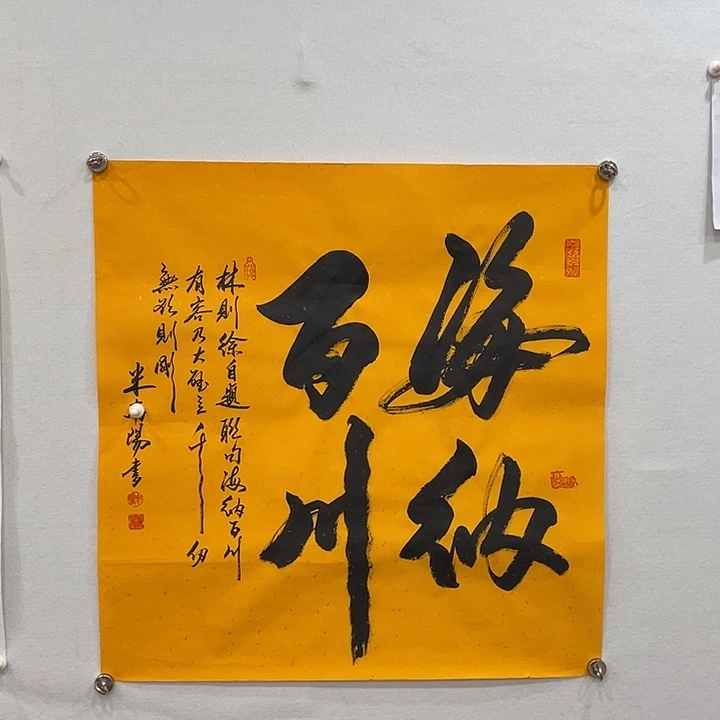 海納
百川
林則徐自題聯句海納百川
有容乃大壁立千仞
無欲則剛
米 陽書